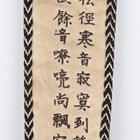 松徑寒音寂寞到
餘音嘹喨尚飄